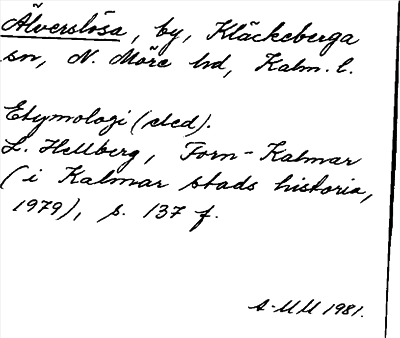 Älverslösa, by, Kläckeberga
sn, N. Möre hd, Kalm. l.
Etymologi (cled).
L. Hellberg, Forn-Kalmar
(i Kalmar stads historia,
1979), s. 137 f.
A-MM 1981.